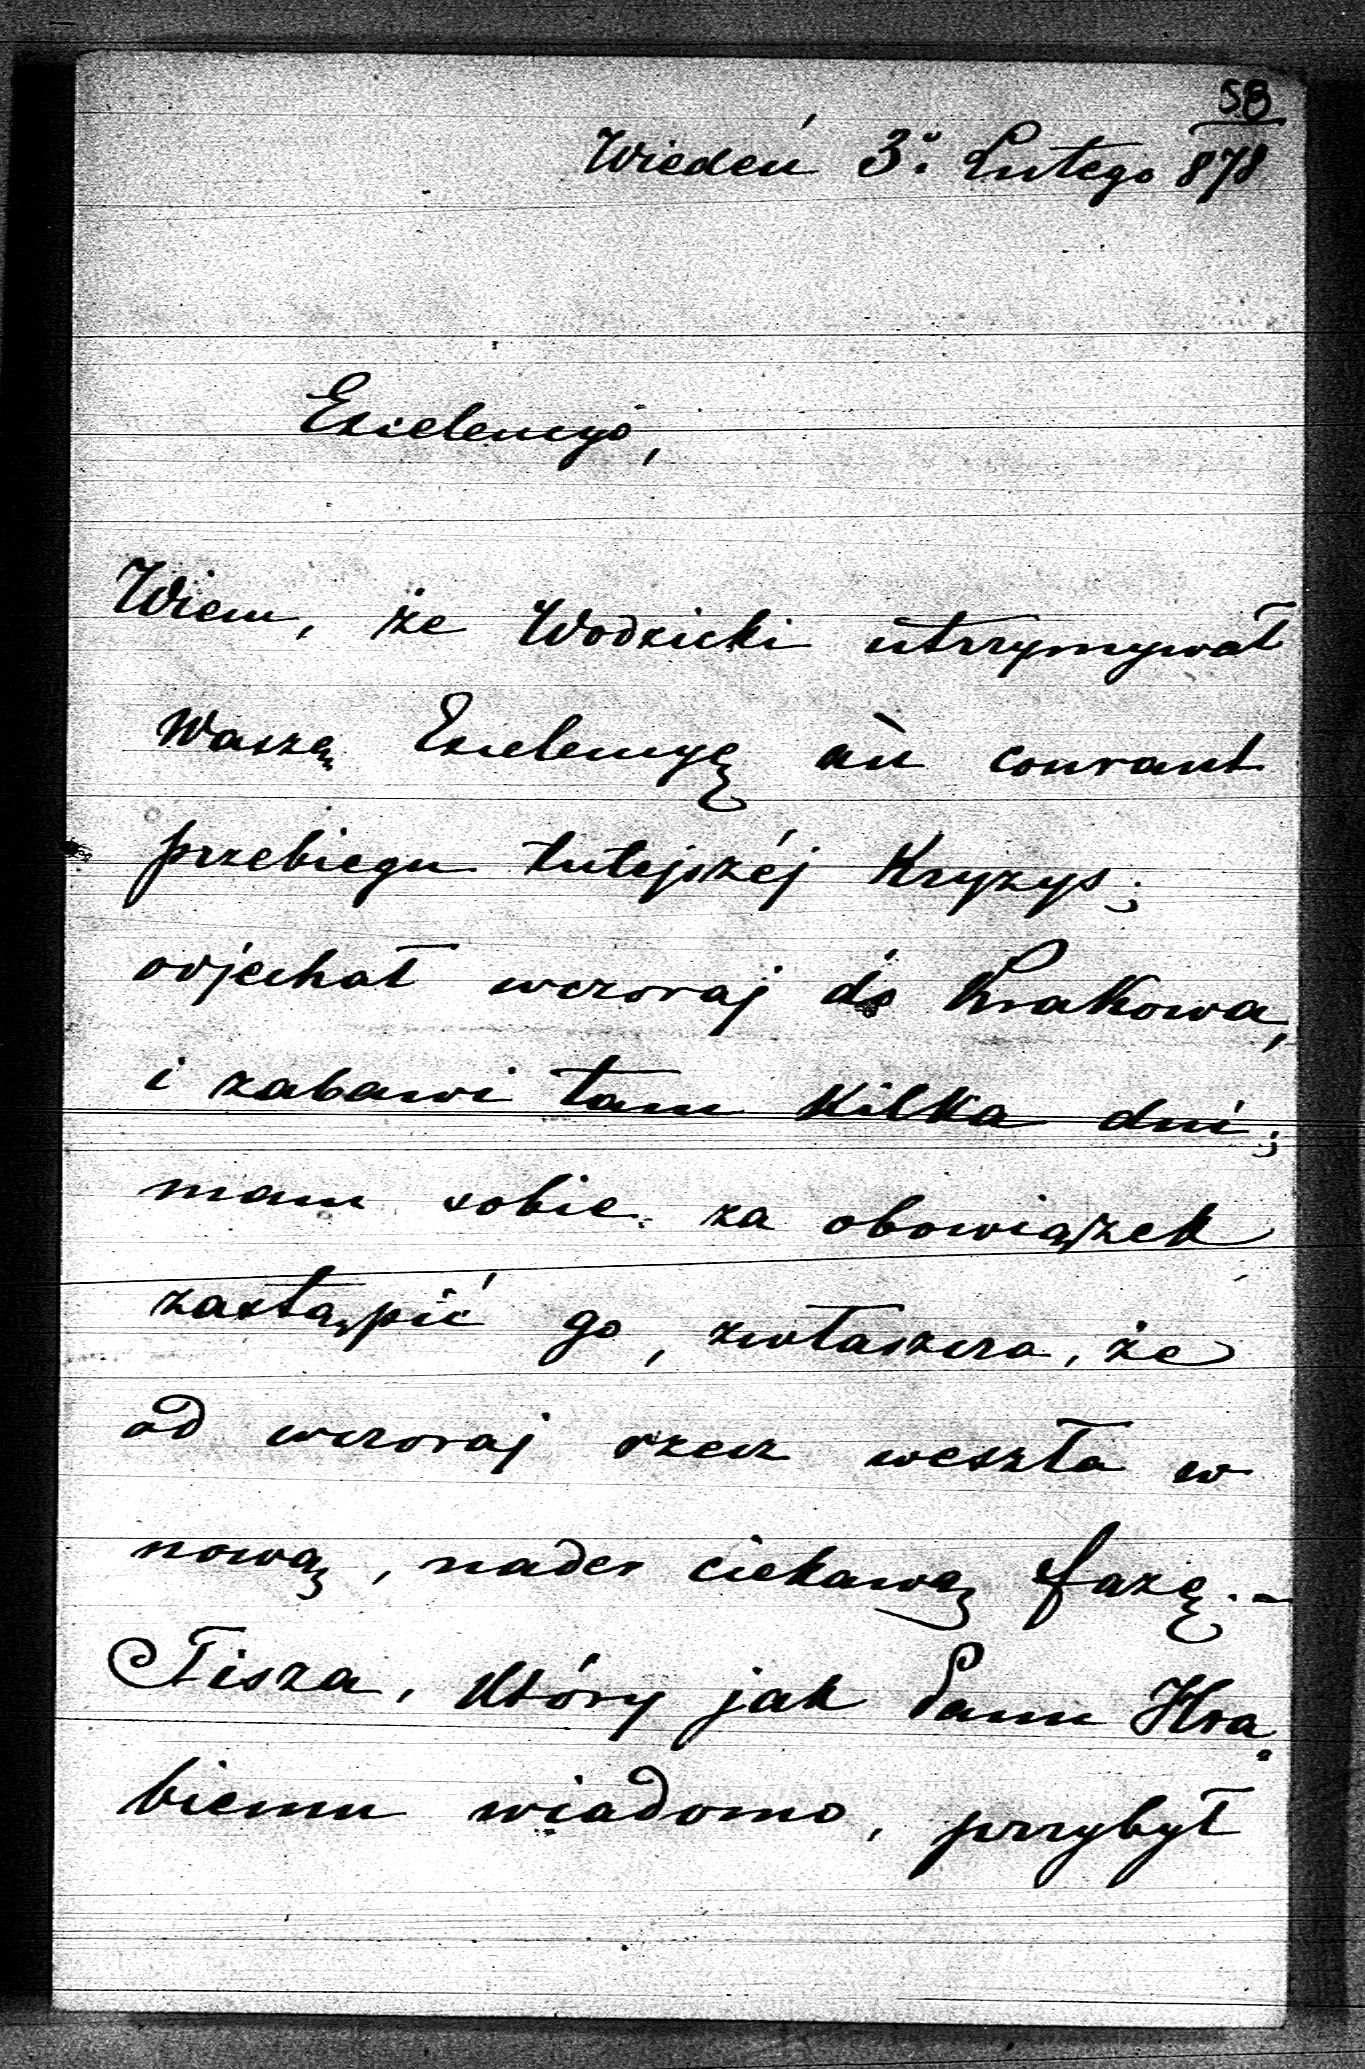 58
Wiedeń 3º Lutego 878
Excelencyo,
Wiem, że Wodzicki utrzymywał
Waszą Excelencyę aù courant
przebiegu tutejszéj Kryzys;
odjechał wczoraj do Krakowa,
i zabawi tam kilka dni;
mam sobie za obowiązek
zastąpić go, zwłaszcza, że
od wczoraj rzecz weszła w
nową, nader ciekawą fazę.-
Tisza, który jak Panu Hra
biemu wiadomo, przybył